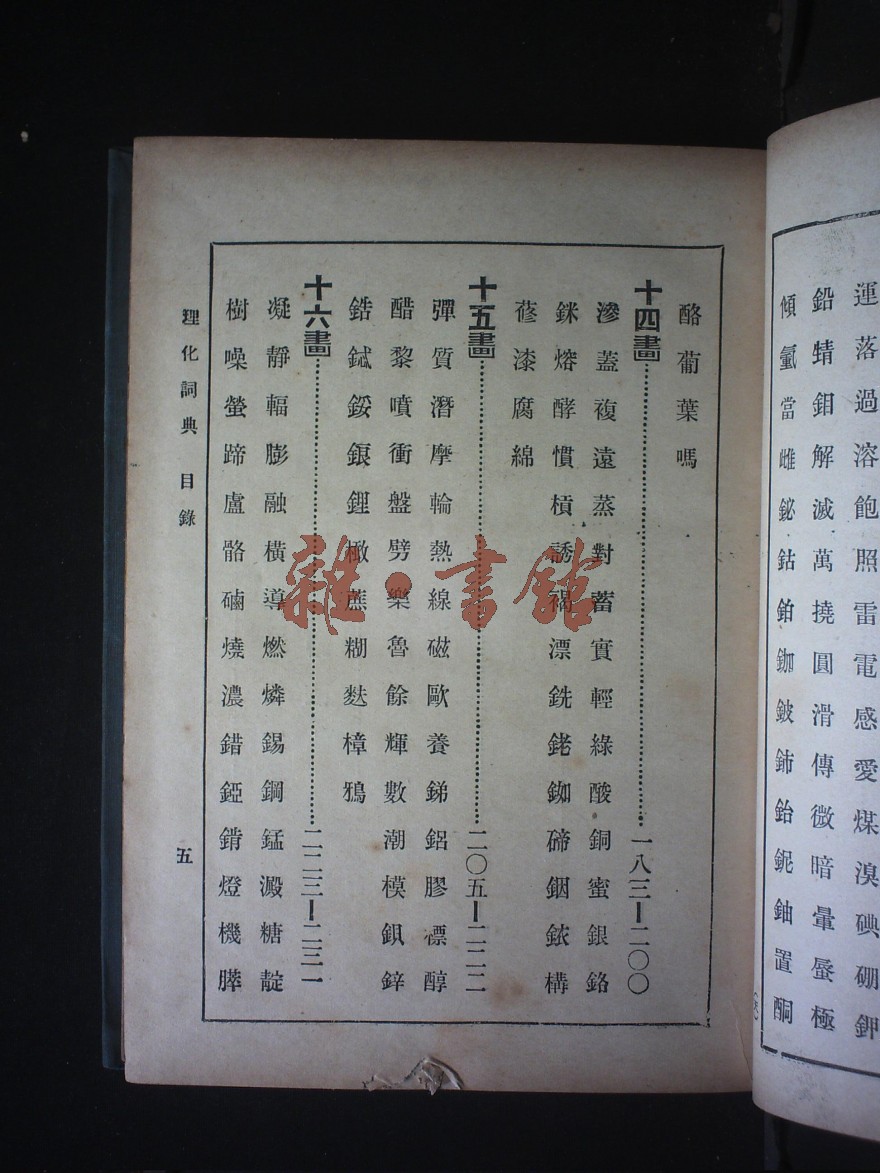 運落過溶飽照雷電感愛煤溴碘硼鉀
鉛蜻鉬解滅萬撓圓滑傳微暗暈蜃極
傾氫當雌鉍鈷鉑鉫鈹鈰鈶鈮鈾置酮
酪葡葉嗎
十四畫 一八三—二〇〇
滲蓋複遠蒸對蓄實輕綠酸銅蜜銀鉻
銤熔酵慣槓誘褐漂銑銠銣碲銦銥構
蓚漆腐綿
十五畫 二〇五—二二二
彈質潛摩輪熱線磁歐養銻鋁膠標醇
醋黎噴衝盤劈樂魯餘輝數潮模鋇鋅
鋯鋱鋖鋃鋰橄蔗糊麩樟鴉
十六畫 二二三—二三一
凝靜輻膨融橫導燃燐錫鋼錳澱糖靛
樹噪螢蹄盧骼硇燒濃錯錏錆燈機膵
理化詞典 目錄
五
雜·書館